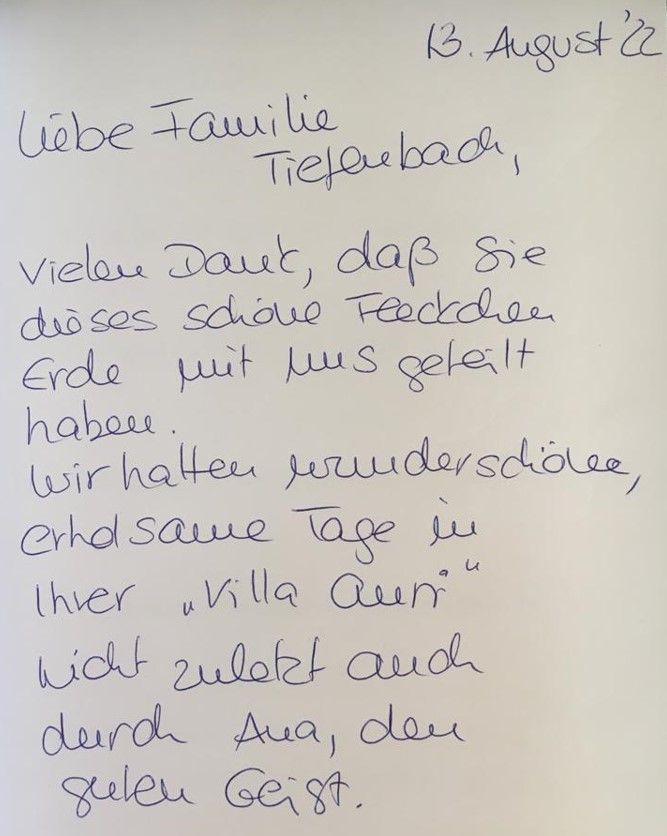 13. August '22
Liebe Familie
Tiefenbach,
vielen Dank, daß Sie
dieses schöne Fleckchen
Erde mit uns geteilt
haben.
Wir hatten wunderschöne,
erholsame Tage in
Ihrer „Villa Auri“
nicht zuletzt auch
durch Ana, den
guten Geist.